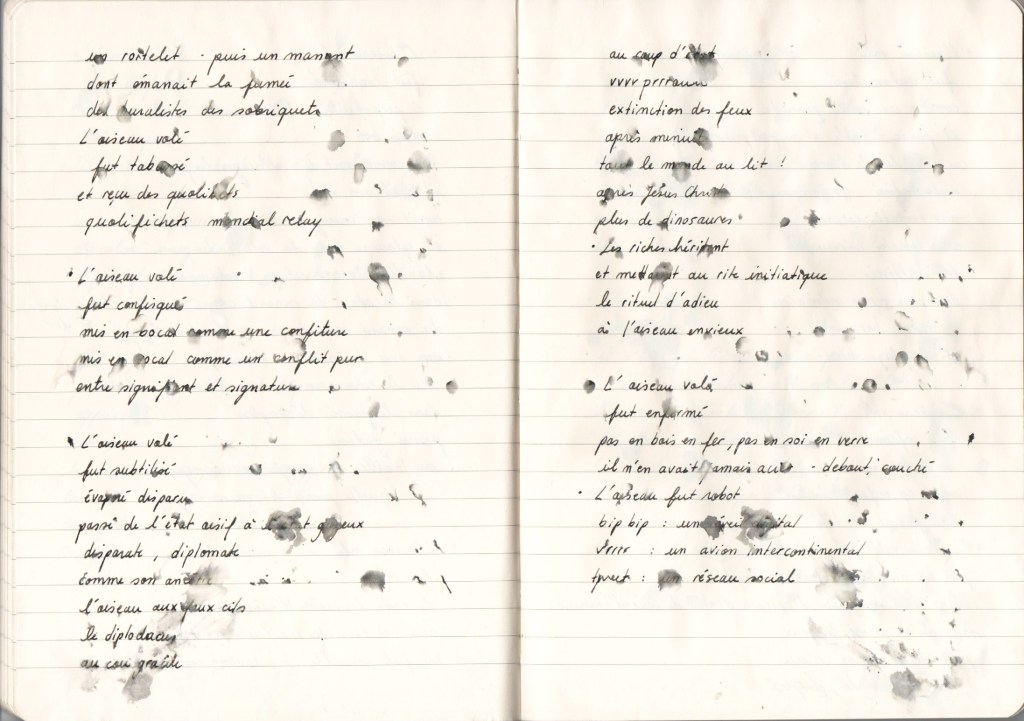 un roitelet · puis un manant
dont émanait la fumée
des buralistes des sobriquets
L'oiseau volé
fut tabassé
et reçu des quolibets
quolifichets mondial relay
L'oiseau volé
fut confisqué
mis en bocal comme une confiture
mis en bocal comme un conflit pur
entre signifiant et signature
L'oiseau volé
fut subtilisé
évaporé disparu
passé de l'état oisif à l'état gazeux
disparate, diplomate
comme son ancêtre
l'oiseau aux faux cils
le diplodocus
au cou gracile
au coup d'état
vvvv prrraum
extinction des feux
après minuit
tout le monde au lit !
après Jésus Christ
plus de dinosaures
· Les riches héritent
et mettent au rite initiatique
le rituel d'adieu
à l'oiseau envieux
L'oiseau volé
fut enfermé
pas en bois en fer, pas en soi en verre
il n'en avait jamais · debout, couché
· L'oiseau fut robot
bip bip : un réveil digital
vrrr : un avion intercontinental
tweet : un réseau social